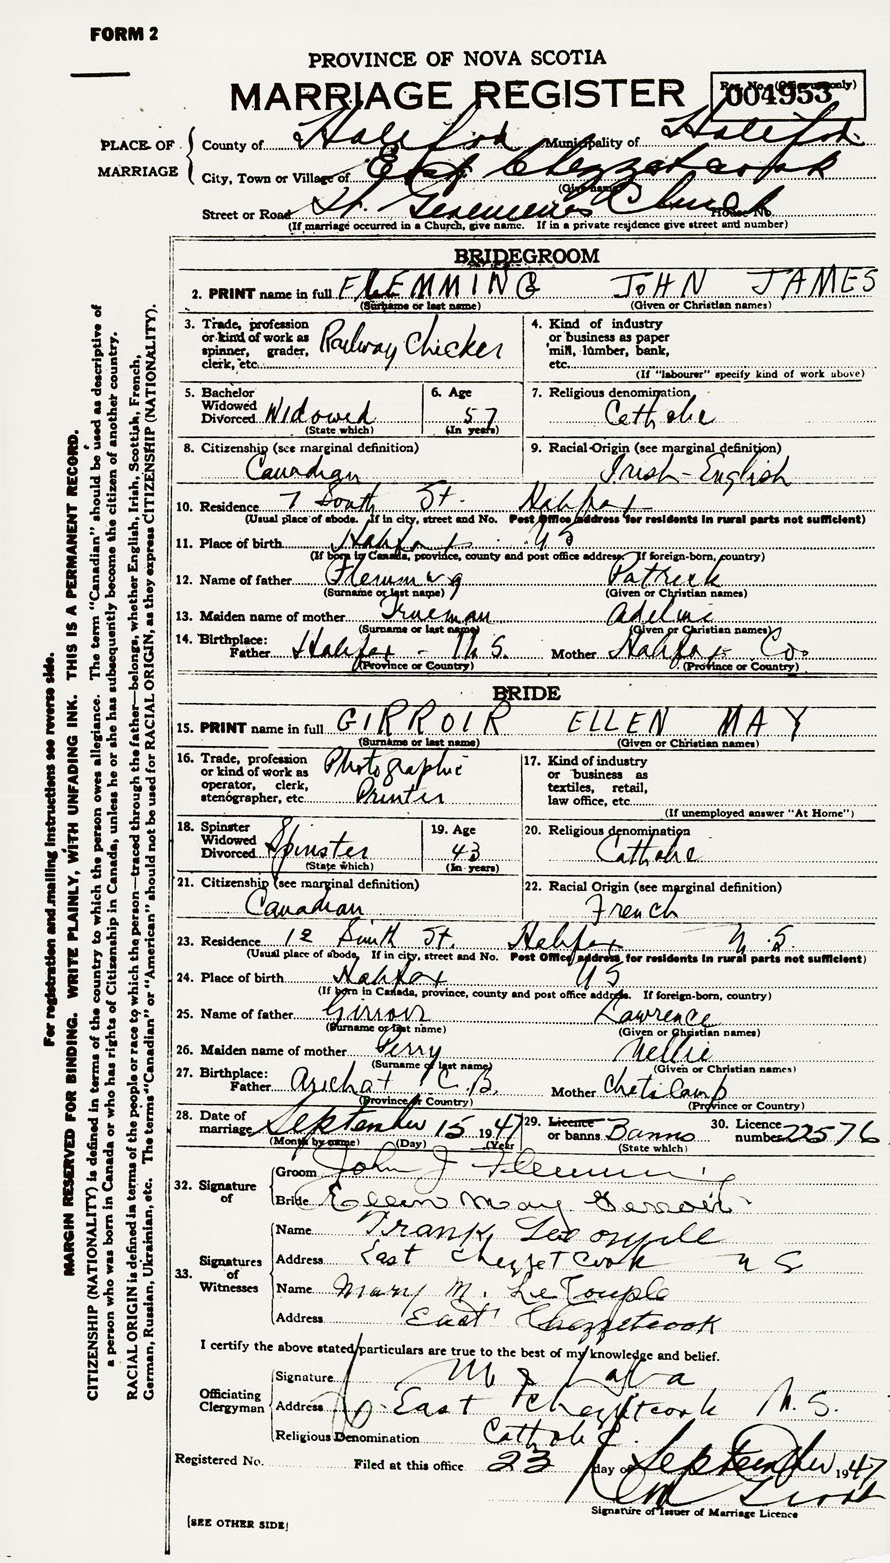 FORM 2
PROVINCE OF NOVA SCOTIA
MARRIAGE REGISTER
Reg. No. (Office use only)
004953
PLACE OF MARRIAGE
County of Halifax Municipality of Halifax
City, Town or Village of East Chezzetcook
(Give name)
Street or Road St. Genevieve's Church House No.
(If marriage occurred in a Church, give name. If in a private residence give street and number)
BRIDEGROOM
2. PRINT name in full FLEMMING JOHN JAMES
(Surname or last name) (Given or Christian names)
3. Trade, profession or kind of work as spinner, grader, clerk, etc. Railway Checker
4. Kind of industry or business as paper mill, lumber, bank, etc.
(If "labourer" specify kind of work above)
5. Bachelor Widowed Divorced Widowed
(State which)
6. Age 57
(In years)
7. Religious denomination Catholic
8. Citizenship (see marginal definition)
Canadian
9. Racial Origin (see marginal definition)
Irish-English
10. Residence 7 South St. Halifax
(Usual place of abode. If in city, street and No. Post Office address for residents in rural parts not sufficient)
11. Place of birth Halifax NS
(If born in Canada, province, county and post office address. If foreign-born, country)
12. Name of father Flemming Patrick
(Surname or last name) (Given or Christian names)
13. Maiden name of mother Trueman Adeline
(Surname or last name) (Given or Christian names)
14. Birthplace: Father Halifax - N.S. Mother Halifax Co.
(Province or Country) (Province or Country)
BRIDE
15. PRINT name in full GIRROIR ELLEN MAY
(Surname or last name) (Given or Christian names)
16. Trade, profession or kind of work as operator, clerk, stenographer, etc. Photographic Printer
17. Kind of industry or business as textiles, retail, law office, etc.
(If unemployed answer "At Home")
18. Spinster Widowed Divorced Spinster
(State which)
19. Age 43
(In years)
20. Religious denomination
Catholic
21. Citizenship (see marginal definition)
Canadian
22. Racial Origin (see marginal definition)
French
23. Residence 12 Smith St. Halifax N.S.
(Usual place of abode. If in city, street and No. Post Office address for residents in rural parts not sufficient)
24. Place of birth Halifax NS
(If born in Canada, province, county and post office address. If foreign-born, country)
25. Name of father Girroir Lawrence
(Surname or last name) (Given or Christian names)
26. Maiden name of mother Perry Nellie
(Surname or last name) (Given or Christian names)
27. Birthplace: Father Arichat C.B. Mother Cheticamp
(Province or Country) (Province or Country)
28. Date of marriage September 15 1947
(Month by name) (Day) (Year
29. Licence or banns Banns
(State which)
30. Licence number 22576
32. Signature of
Groom John J Flemming
Bride Ellen May Girroir
33. Signatures of Witnesses
Name Frank
Address East Chezzetcook N S
Name Mary M.
Address East Chezzetcook
I certify the above stated particulars are true to the best of my knowledge and belief.
Officiating Clergyman
Signature
Address East Chezzetcook N.S.
Religious Denomination Catholic
Registered No. Filed at this office 23 day of September 1947
Signature of Issuer of Marriage Licence
[SEE OTHER SIDE]
For registration and mailing instructions see reverse side.
MARGIN RESERVED FOR BINDING. WRITE PLAINLY, WITH UNFADING INK. THIS IS A PERMANENT RECORD.
CITIZENSHIP (NATIONALITY) is defined in terms of the country to which the person owes allegiance. The term "Canadian" should be used as descriptive of
a person who was born in Canada or who has rights of Citizenship in Canada, unless he or she has subsequently become the citizen of another country.
RACIAL ORIGIN is defined in terms of the people or race to which the person—traced through the father—belongs, whether English, Irish, Scottish, French,
German, Russian, Ukrainian, etc. The terms "Canadian" or "American" should not be used for RACIAL ORIGIN, as they express CITIZENSHIP (NATIONALITY).